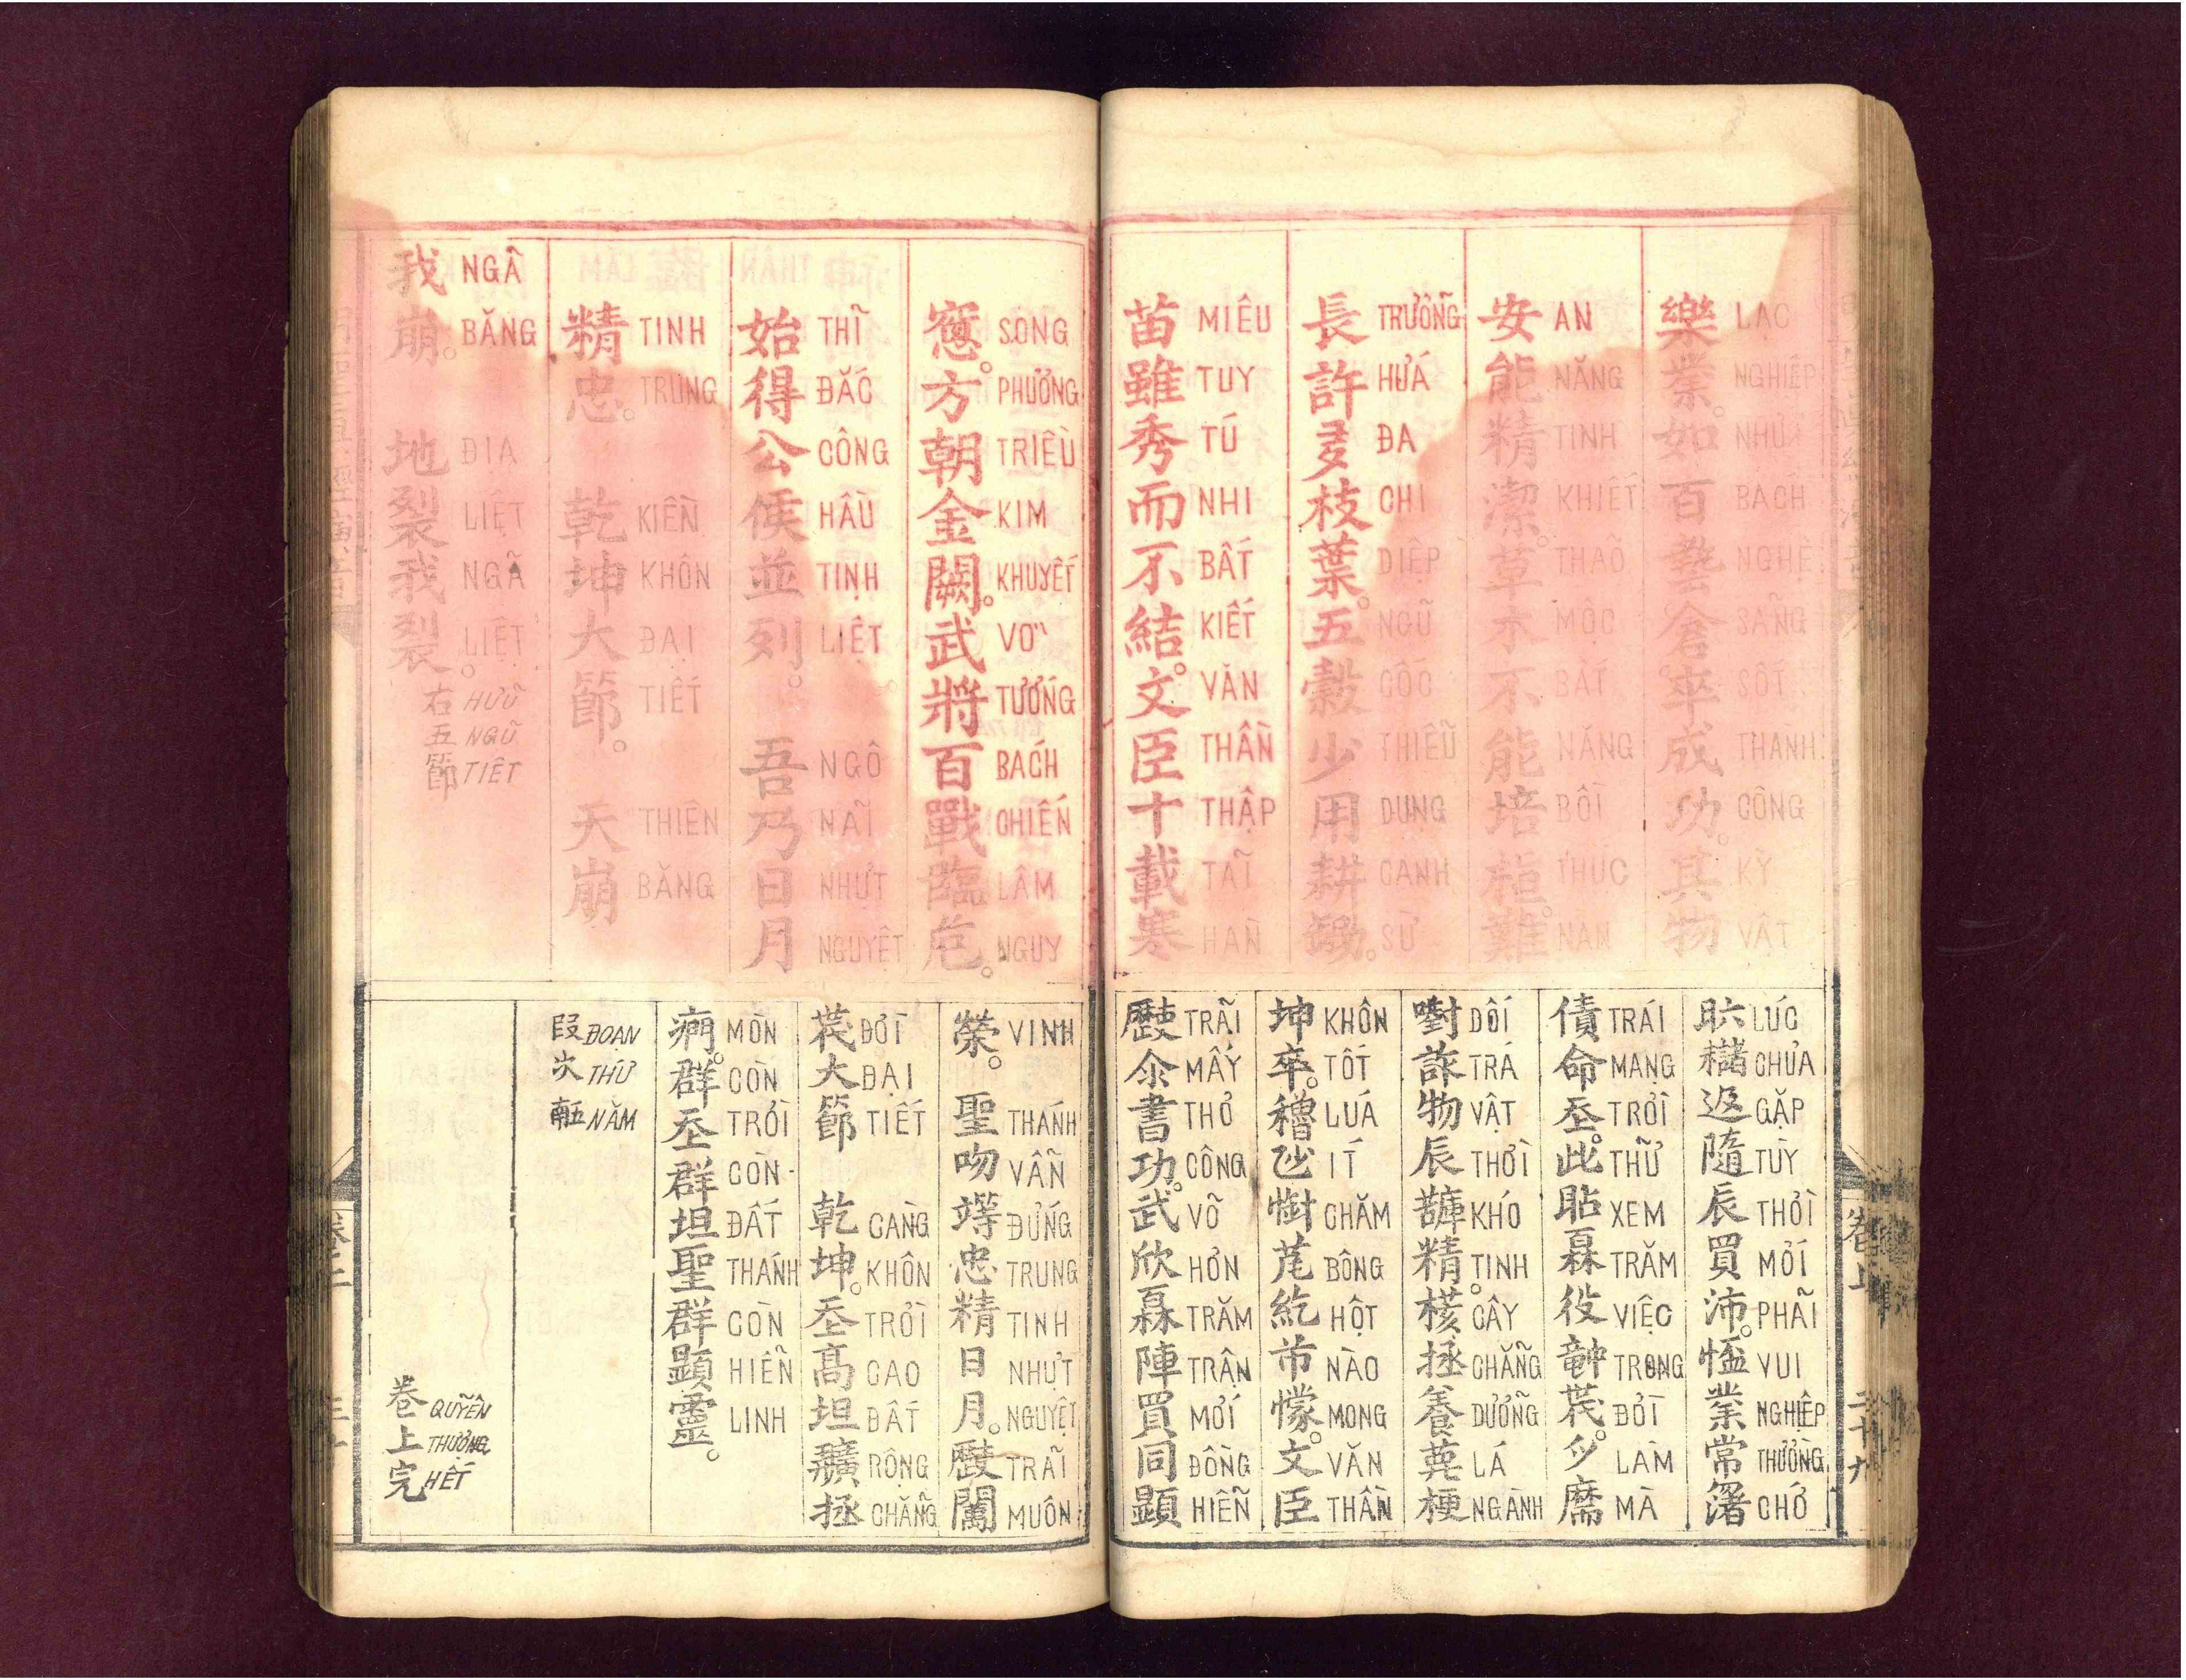 樂業。如百藝倉卒成功。其物
LẠC NGHIỆP NHƯ BÁCH NGHỆ SÃNG SỐT THÀNH CÔNG KỲ VẬT
安能精潔。草木不能培植。難
AN NĂNG TINH KHIẾT THAÕ MỘC BẤT NĂNG BỒI THỰC NAN
長許多枝葉。五穀少用耕鋤。
TRƯỞNG HỨA ĐA CHI DIỆP NGŨ CỐC THIỄU DỤNG CANH SỪ
苗雖秀而不結。文臣十載寒
MIÊU TUY TÚ NHI BẤT KIẾT VĂN THẦN THẬP TAĨ HÀN
窓。方朝金闕。武將百戰臨危。
SONG PHƯƠNG TRIỀU KIM KHUYẾT VÕ TƯỚNG BÁCH CHIẾN LÂM NGUY
始得公侯並列。吾乃日月
THĨ ĐẮC CÔNG HẦU TỊNH LIỆT NGÔ NAĨ NHỰT NGUYỆT
精忠。乾坤大節。天崩
TINH TRUNG KIỀN KHÔN ĐẠI TIẾT THIÊN BĂNG
我崩。地裂我裂。
NGÃ BĂNG ĐỊA LIỆT NGÃ LIỆT
右五節
HƯŨ NGŨ TIẾT
𣅶𥡗返隨辰買沛。𢢂業常𥴙
LÚC CHÙA GẶP TÙY THỜI MỚI PHẢI VUI NGHIỆP THƯỜNG CHỚ
債命𡗶。此䀡𤾓役𥪝𠁀。𱜢麽
TRÁI MẠNG TRỜI THỬ XEM TRĂM VIỆC TRONG ĐỜI LÀM MÀ
嚉詐物辰𧁷精。核拯養蘿梗
DỐI TRÁ VẬT THỜI KHÓ TINH CÂY CHẲNG DƯỠNG LÁ NGÀNH
坤卒。穭𠃣㨂芃紇市懞。文臣
KHÔN TỐT LUÁ ÍT CHĂM BÔNG HỘT NÀO MONG VĂN THẦN
歷㐌書功。武欣𤾓陣買同顕
TRÃI MẤY THƠ CÔNG VÕ HƠN TRĂM TRẬN MỚI ĐỒNG HIỂN
榮。聖吻𥪸忠精日月。歷闖
VINH THÁNH VẪN ĐỨNG TRUNG TINH NHỰT NGUYỆT TRẢI MUÔN
𠁀大節乾坤。𡗶高坦𢌌拯
ĐỜI ĐẠI TIẾT CÀNG KHÔN TRỜI CAO ĐẤT RỘNG CHẲNG
𤷱。群𡗶群坦聖群顕靈。
MÒN CÒN TRỜI CÒN ĐẤT THÁNH CÒN HIỂN LINH
段次𠄼
ĐOẠN THỨ NĂM
卷上完
QUYỄN THƯỢNG HẾT
卷上
二十九